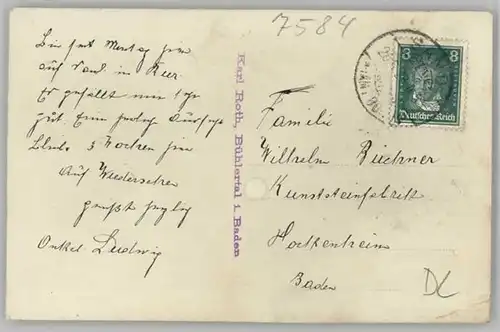 7584
Bin seit Montag hier
auf Land in Kur
Es gefällt mir sehr
gut. Eine
Bleibe 3 Wochen hier
Auf Wiedersehen
grüsst
Onkel Ludwig
Karl Roth, Bühlertal i. Baden
8 8
Deutsches Reich
Familie
Wilhelm Büchner
Kunststeinfabrik
Hockenheim
Baden
DL